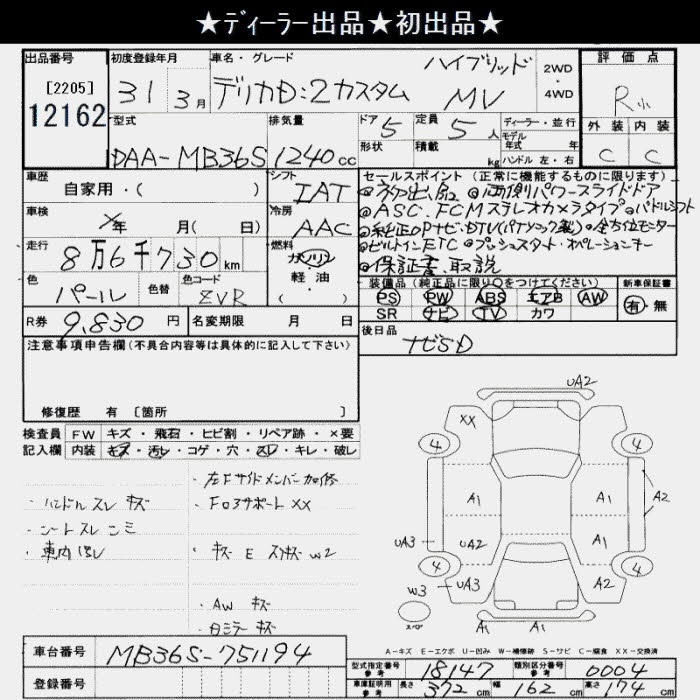 ★ディーラー出品★初出品★
出品番号
[2205]
12162
初度登録年月
31 3月
車名・グレード
デリカD:2カスタム
ハイブリッド
MV
2WD
・
4WD
評価点
R小
外装 内装
C C
型式
DAA-MB36S
排気量
1240cc
ドア 5
形状
定員 5人
積載 kg
ディーラー・並行
モデル
年式 年
ハンドル 左・右
車歴
自家用・( )
車検
年 月( 日)
走行
8万6千730km
色
パール
色替
色コード
ZVR
シフト
IAT
冷房
AAC
燃料
ガソリン
軽油
( )
セールスポイント(正常に機能するものに限ります)
◎初出品 ◎両側パワースライドドア
◎ASC.FCMステレオカメラタイプ◎パドルシフト
◎純正OPナビ・DTV(パナソニック製)◎全方位モニター
◎ビルトインETC ◎プッシュスタート・オペレーションキー
◎保証書、取説
装備品(純正品に限り○をつけてください)
PS PW ABS エアB AW
SR ナビ TV カワ
新車保証書
有・無
後日品
ナビSD
R券 9,830円
名変期限 月 日
注意事項申告欄(不具合内容等は具体的に記入して下さい)
修復歴 有 [箇所 ]
検査員 FW キズ・飛石・ヒビ割・リペア跡・×要
記入欄 内装 キズ・汚レ・コゲ・穴・スレ・キレ・破レ
・左Fサイドメンバー加修
・ハンドルスレ キズ
・FロアサポートXX
・シートスレ シミ
・車内汚レ
・キズ E スリキズ W2
・AW キズ
・白ミラー キズ
UA2
XX
4 4
A1 A1 A2
UA3 UA2 A1
4 4
UA3 A2
W3
A1 A1
A-キズ E-エクボ U-凹み W-補修跡 S-サビ C-腐食 XX-交換済
車台番号 MB36S-751194
登録番号
型式指定番号
参考
18147
類別区分番号
参考
0004
車庫証明用
参考
長さ 372cm 幅 162cm 高さ 174cm